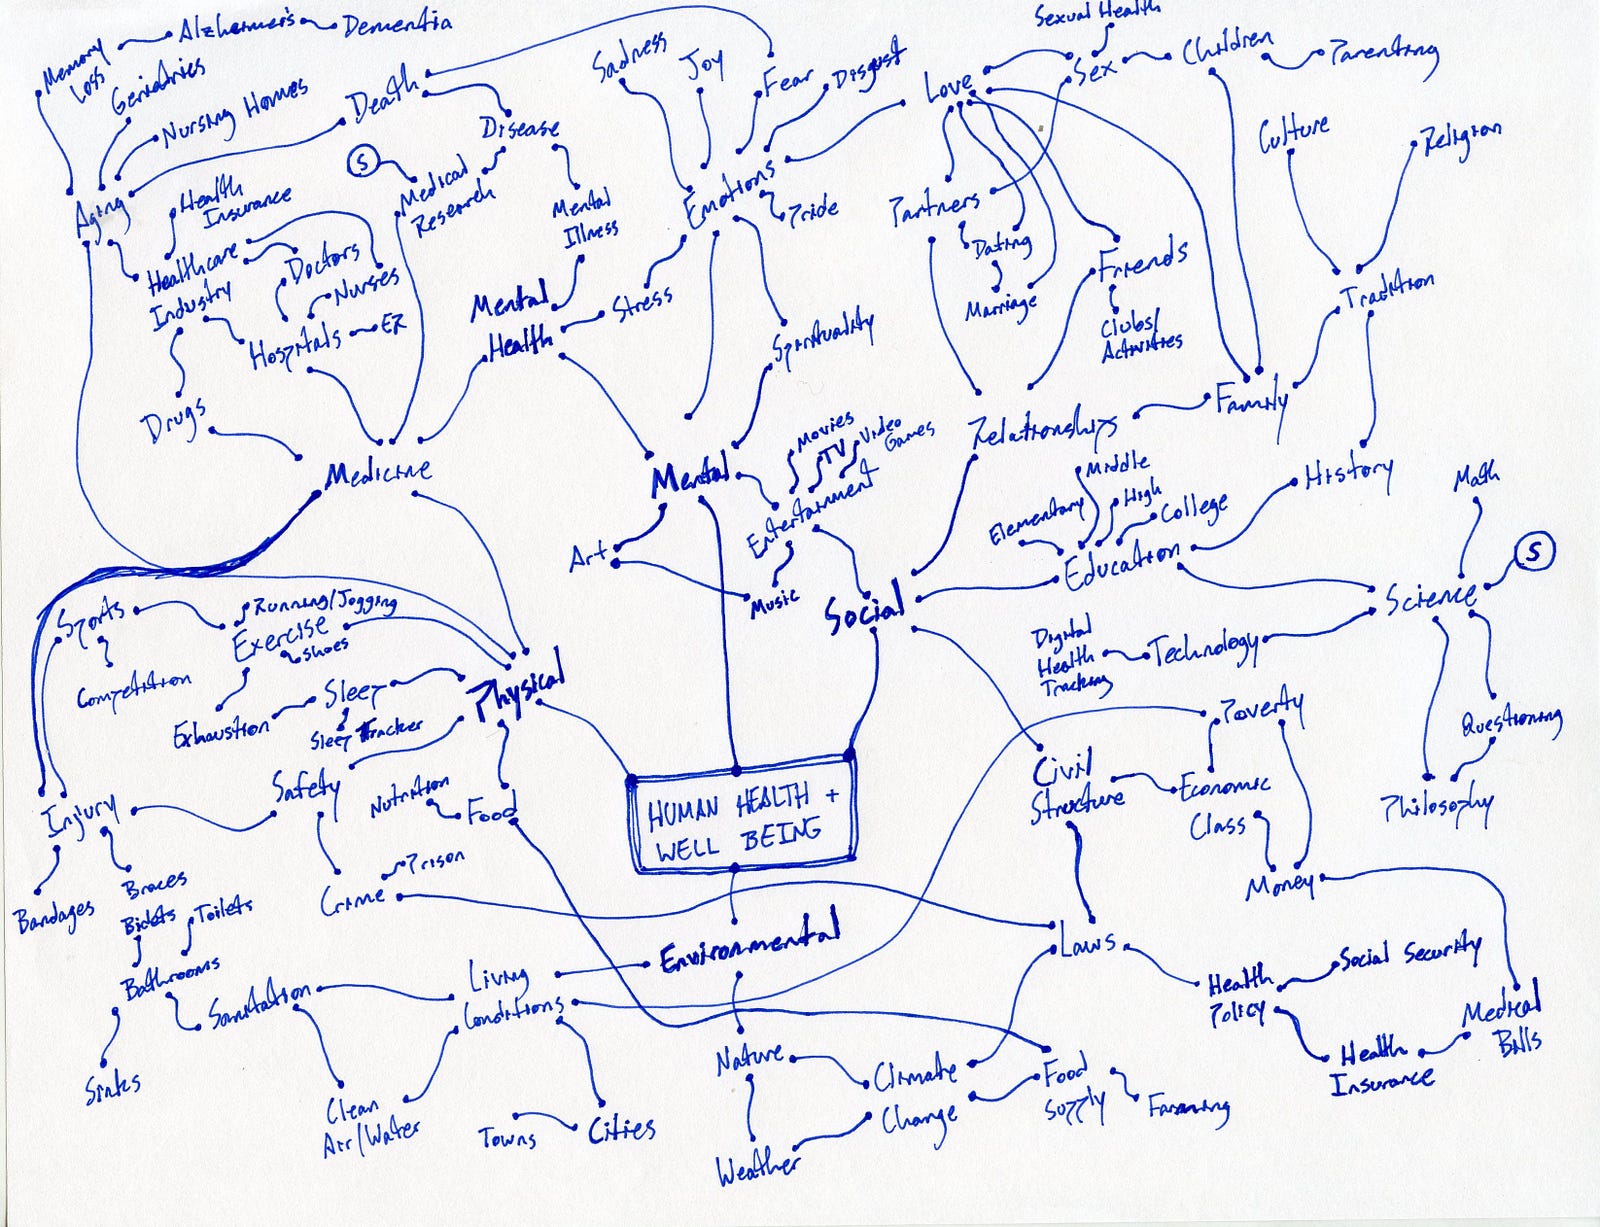 Sexual Health
Memory
Loss
Alzheimer's
Dementia
Geriatrics
Nursing Homes
Death
Sadness
Joy
Fear
Disgust
Love
Sex
Children
Parenting
Disease
Culture
Religion
S
Medical
Research
Mental
Illness
Emotions
Pride
Partners
Dating
Marriage
Friends
Clubs/
Activities
Tradition
Aging
Health
Insurance
Healthcare
Industry
Doctors
Nurses
Hospitals
ER
Drugs
Mental
Health
Stress
Spirituality
Relationships
Family
Medicine
Mental
Movies
TV
Video
Games
Entertainment
Art
Music
Social
Elementary
Middle
High
College
Education
History
Math
S
Science
Sports
Running/Jogging
Exercise
Shoes
Competition
Exhaustion
Sleep
Sleep Tracker
Physical
Digital
Health
Tracking
Technology
Poverty
Questioning
Philosophy
Civil
Structure
Economic
Class
Money
Injury
Safety
Nutrition
Food
HUMAN HEALTH +
WELL BEING
Bandages
Braces
Crime
Prison
Bidets
Toilets
Bathrooms
Sanitation
Sinks
Living
Conditions
Environmental
Laws
Health
Policy
Social Security
Health
Insurance
Medical
Bills
Clean
Air/Water
Towns
Cities
Nature
Weather
Climate
Change
Food
Supply
Farming